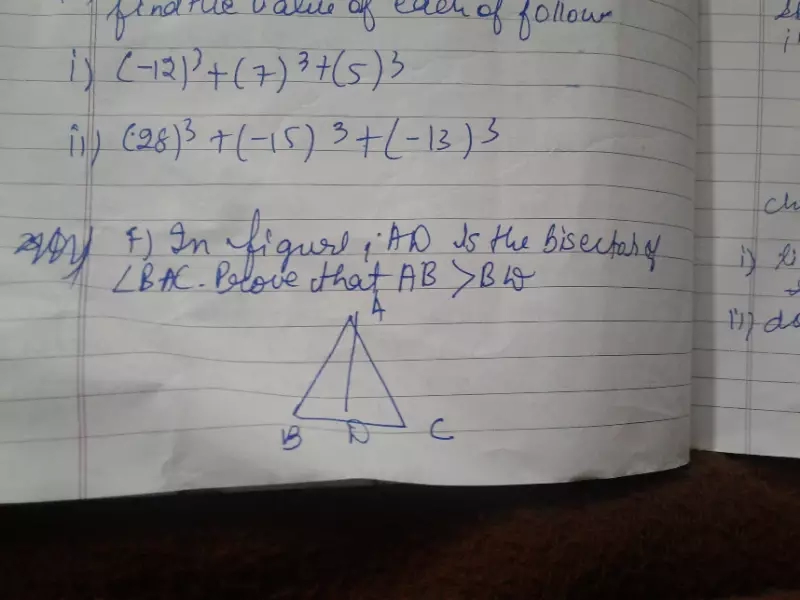 find the value of each of follow
i) (-12)³+(7)³+(5)³
ii) (-28)³+(-15)³+(-13)³
7) In figure, AD is the bisector of
∠BAC. Prove that AB >BD
A
B D C
i)
ii)